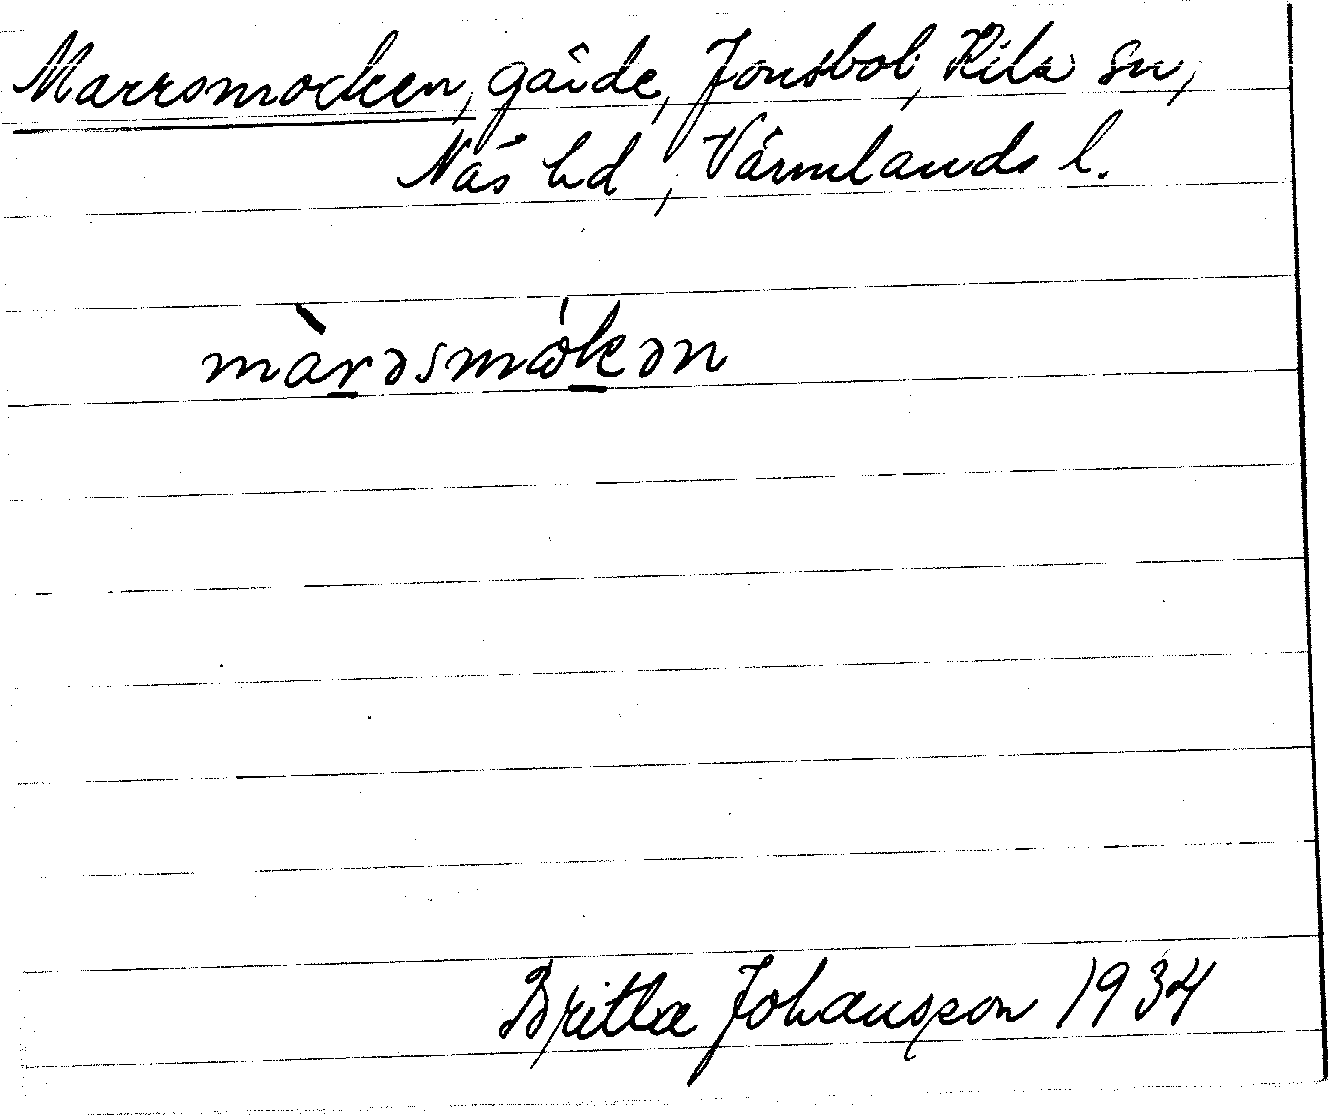 Marrsmocken, gärde, Jonsbol, Kila sn,
Näs hd, Värmlands l.
màrəsmɷ́kən
Britta Johansson 1934